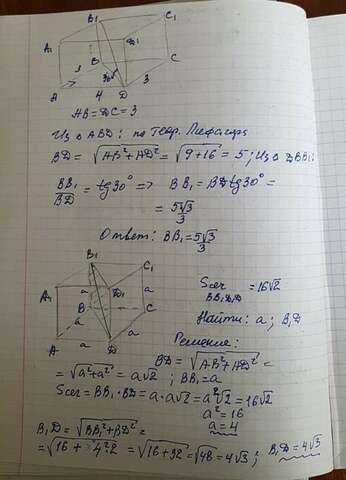 B₁ C₁
A₁ D₁
B C
3 30° 3
A 4 D
AB = DC = 3
Из △ABD: по теор. Пифагора
BD = √AB² + AD² = √9+16 = 5; Из △DBB₁:
BB₁/BD = tg 30° => BB₁ = BD tg 30° =
= 5√3/3
Ответ: BB₁ = 5√3/3
B₁ C₁
A₁ D₁
a a a
B C
a a
A a D
Sсеч = 16√2
BB₁D₁D
Найти: a; B₁D
Решение:
BD = √AB² + AD² =
= √a²+a² = a√2; BB₁ = a
Sсеч = BB₁ · BD = a · a√2 = a²√2 = 16√2
a² = 16
a = 4
B₁D = √BB₁² + BD² =
= √16 + 4²·2 = √16 + 32 = √48 = 4√3; B₁D = 4√3